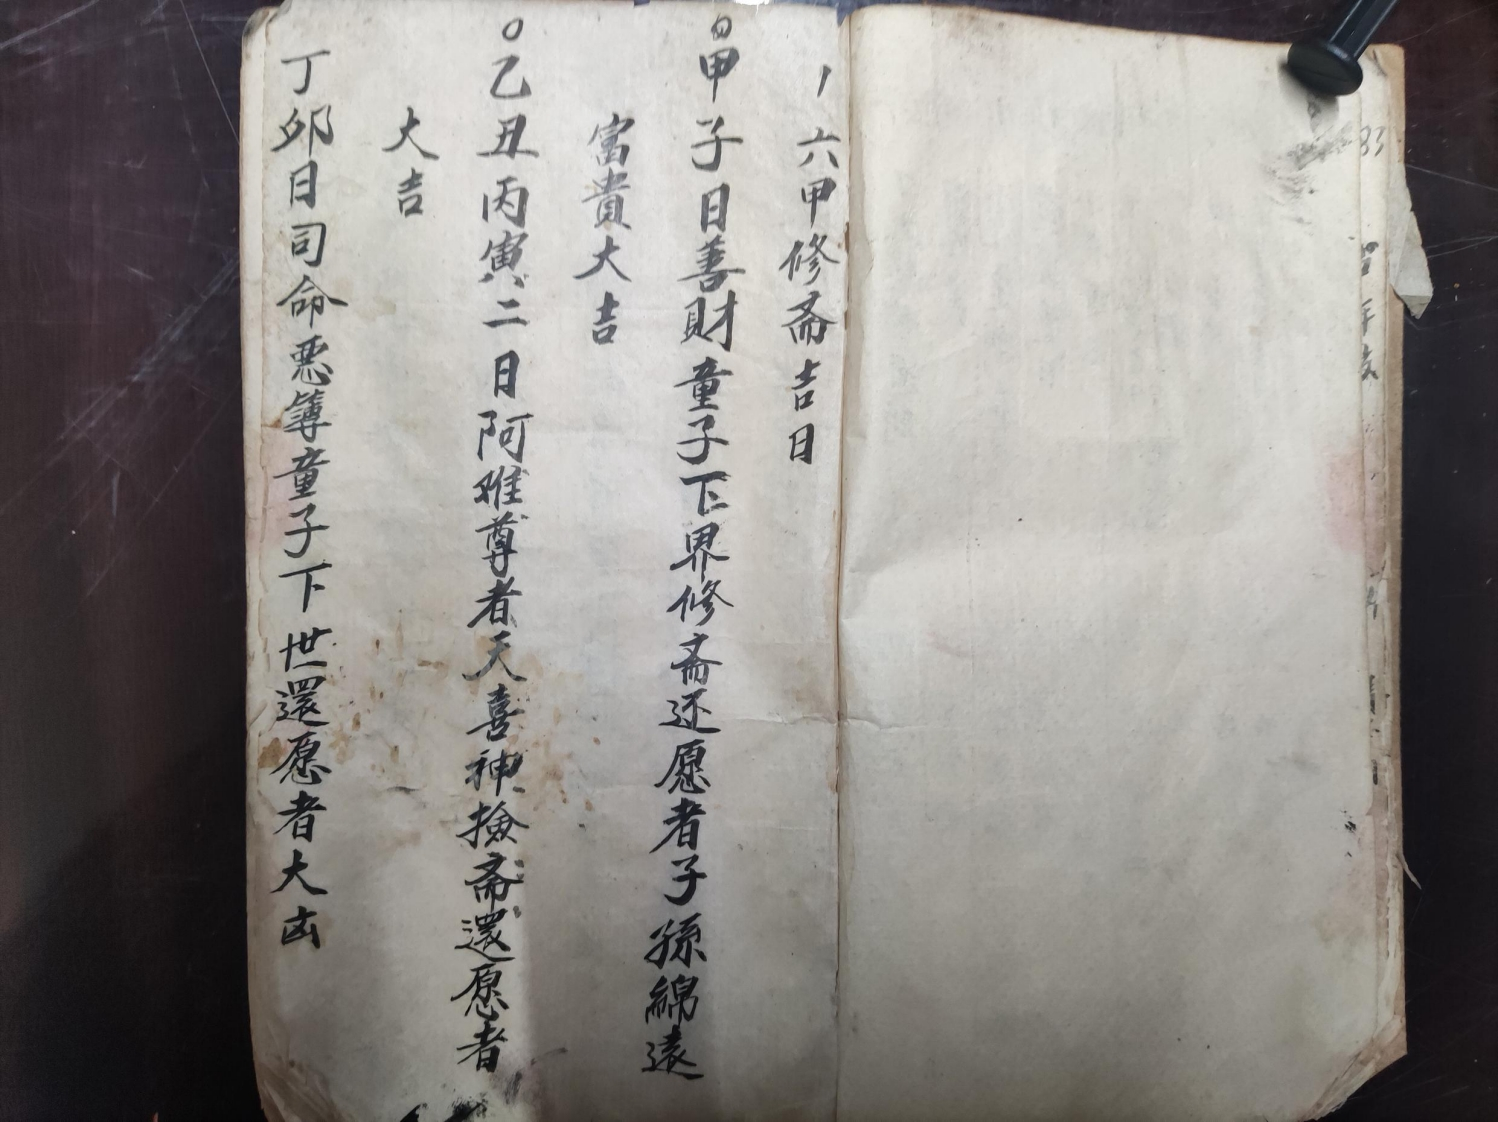 六甲修斋吉日
甲子日善財童子下界修斋还愿者子孫綿遠
富貴大吉
乙丑丙寅二日阿难尊者天喜神撿斋還愿者
大吉
丁卯日司命悪簿童子下世還愿者大凶
83